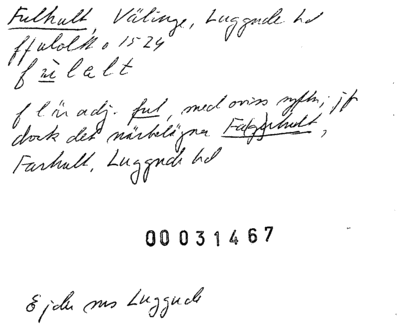 Fulhult, Välinge, Luggude hd
ffulolt 0 1524
fùlalt
f l är adj. ful, med oviss syftn; jfr
dock det närbelägna Fagerhult,
Farhult, Luggude hd
00031467
Ej du ms Luggude